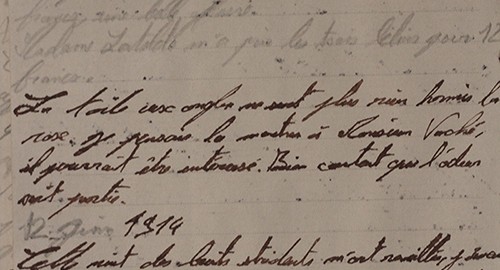 Madame Lalolde m'a pris les trois pour 12
francs.
La toile aux ongles ne sent plus rien hormis la
rose. je pensais la montrer à Monsieur Vaché,
il pourrait être intéressé. Bien content que l'odeur
soit partie.
12 Juin 1914
Cette nuit des bruits stridents m'ont réveillé, j'avais